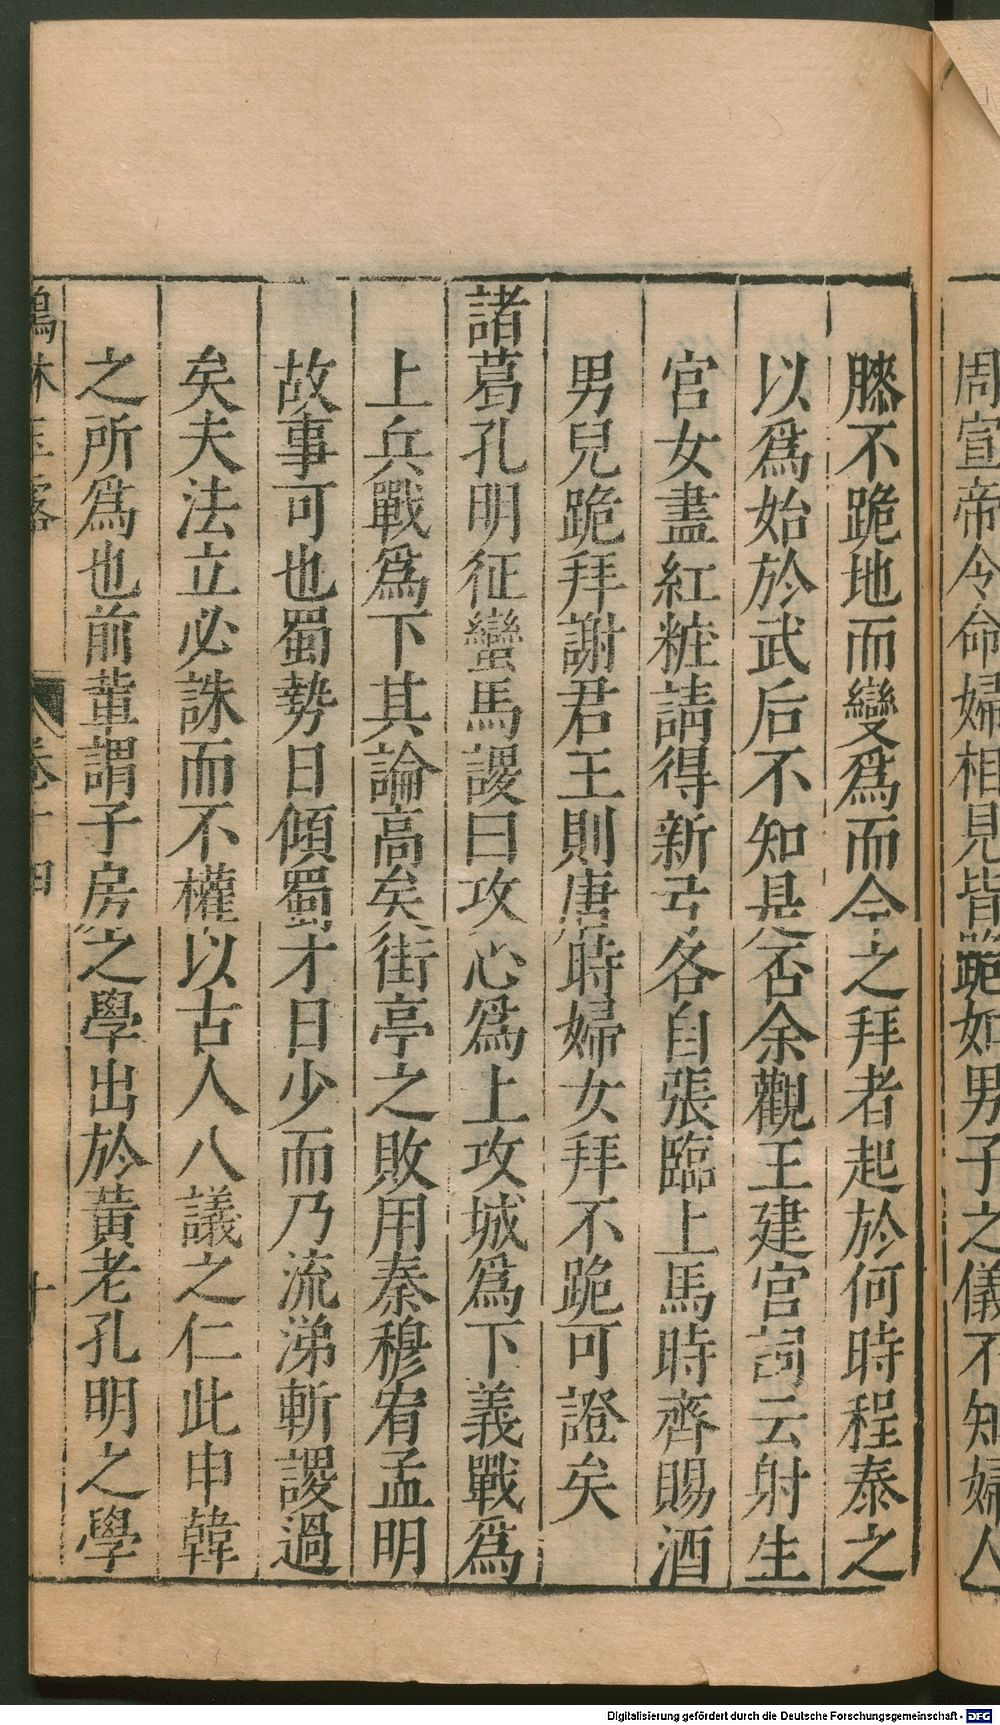 周宣帝令命婦相見皆跪如男子之儀不知婦人
膝不跪地而變爲而今之拜者起於何時程泰之
以爲始於武后不知是否余觀王建宮詞云射生
官女盡紅粧請得新弓各自張臨上馬時齊賜酒
男兒跪拜謝君王則唐時婦女拜不跪可證矣
諸葛孔明征蠻馬謖曰攻心爲上攻城爲下義戰爲
上兵戰爲下其論高矣街亭之敗用秦穆宥孟明
故事可也蜀勢日傾蜀才日少而乃流涕斬謖過
矣夫法立必誅而不權以古人八議之仁此申韓
之所爲也前輩謂子房之學出於黃老孔明之學
鶴林玉露 卷十四 十
Digitalisierung gefördert durch die Deutsche Forschungsgemeinschaft - DFG